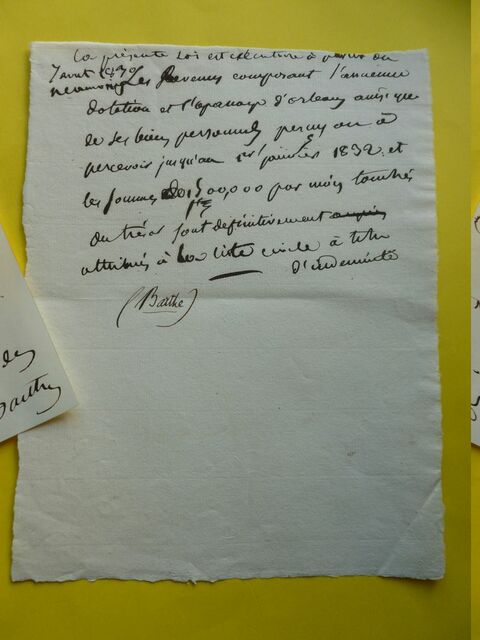 la présente Loi est exécutive à partir du
7 aout 1830
neanmoins Les Revenus composant l'ancienne
dotation et l'apanage d'orleans ainsi que
de ses biens personnels perçus ou à
percevoir jusqu'au 1er janvier 1832 et
les sommes de 1500,000 fr par mois touchés
du trésor sont definitivement
attribués à la liste civile à titre
d'indemnité
(Barthe)
des
Barthe